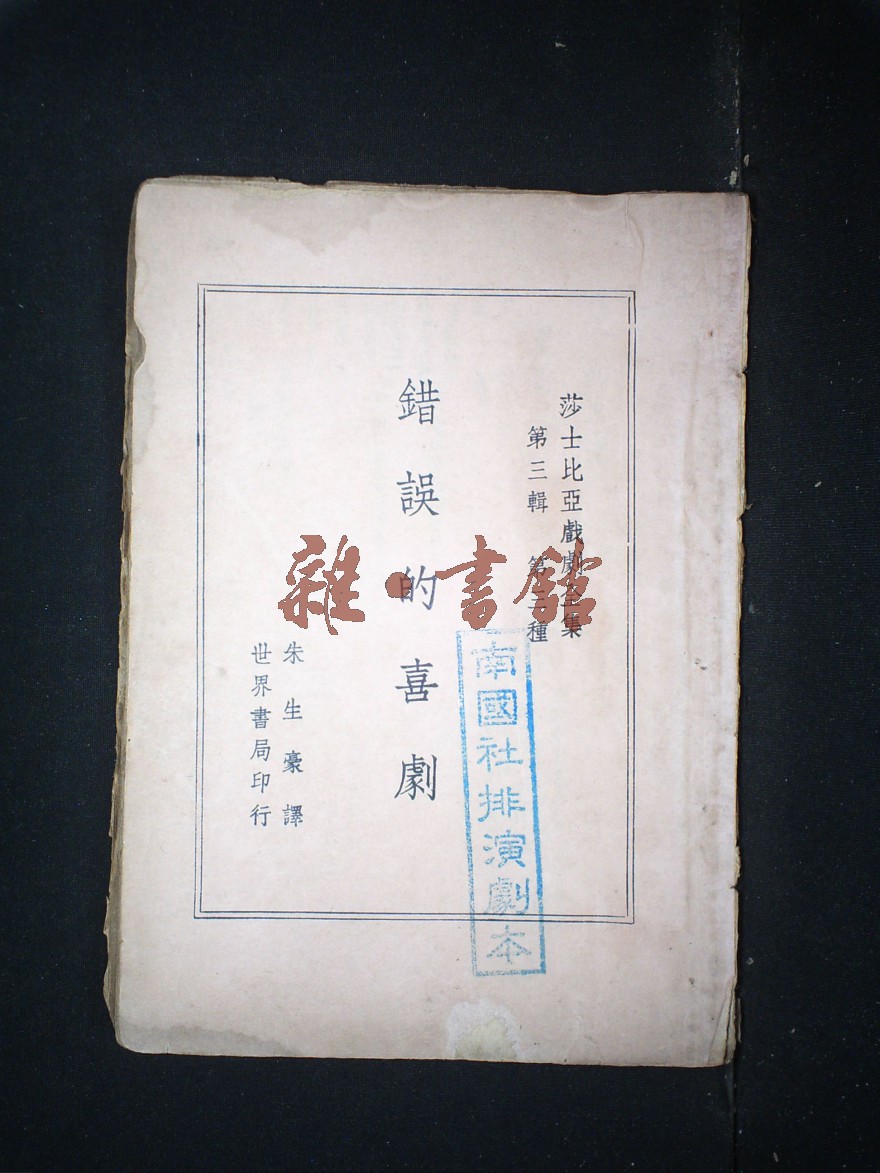 莎士比亞戲劇全集
第三輯 第三種
錯誤的喜劇
朱生豪譯
世界書局印行
南國社排演劇本
雜·書館